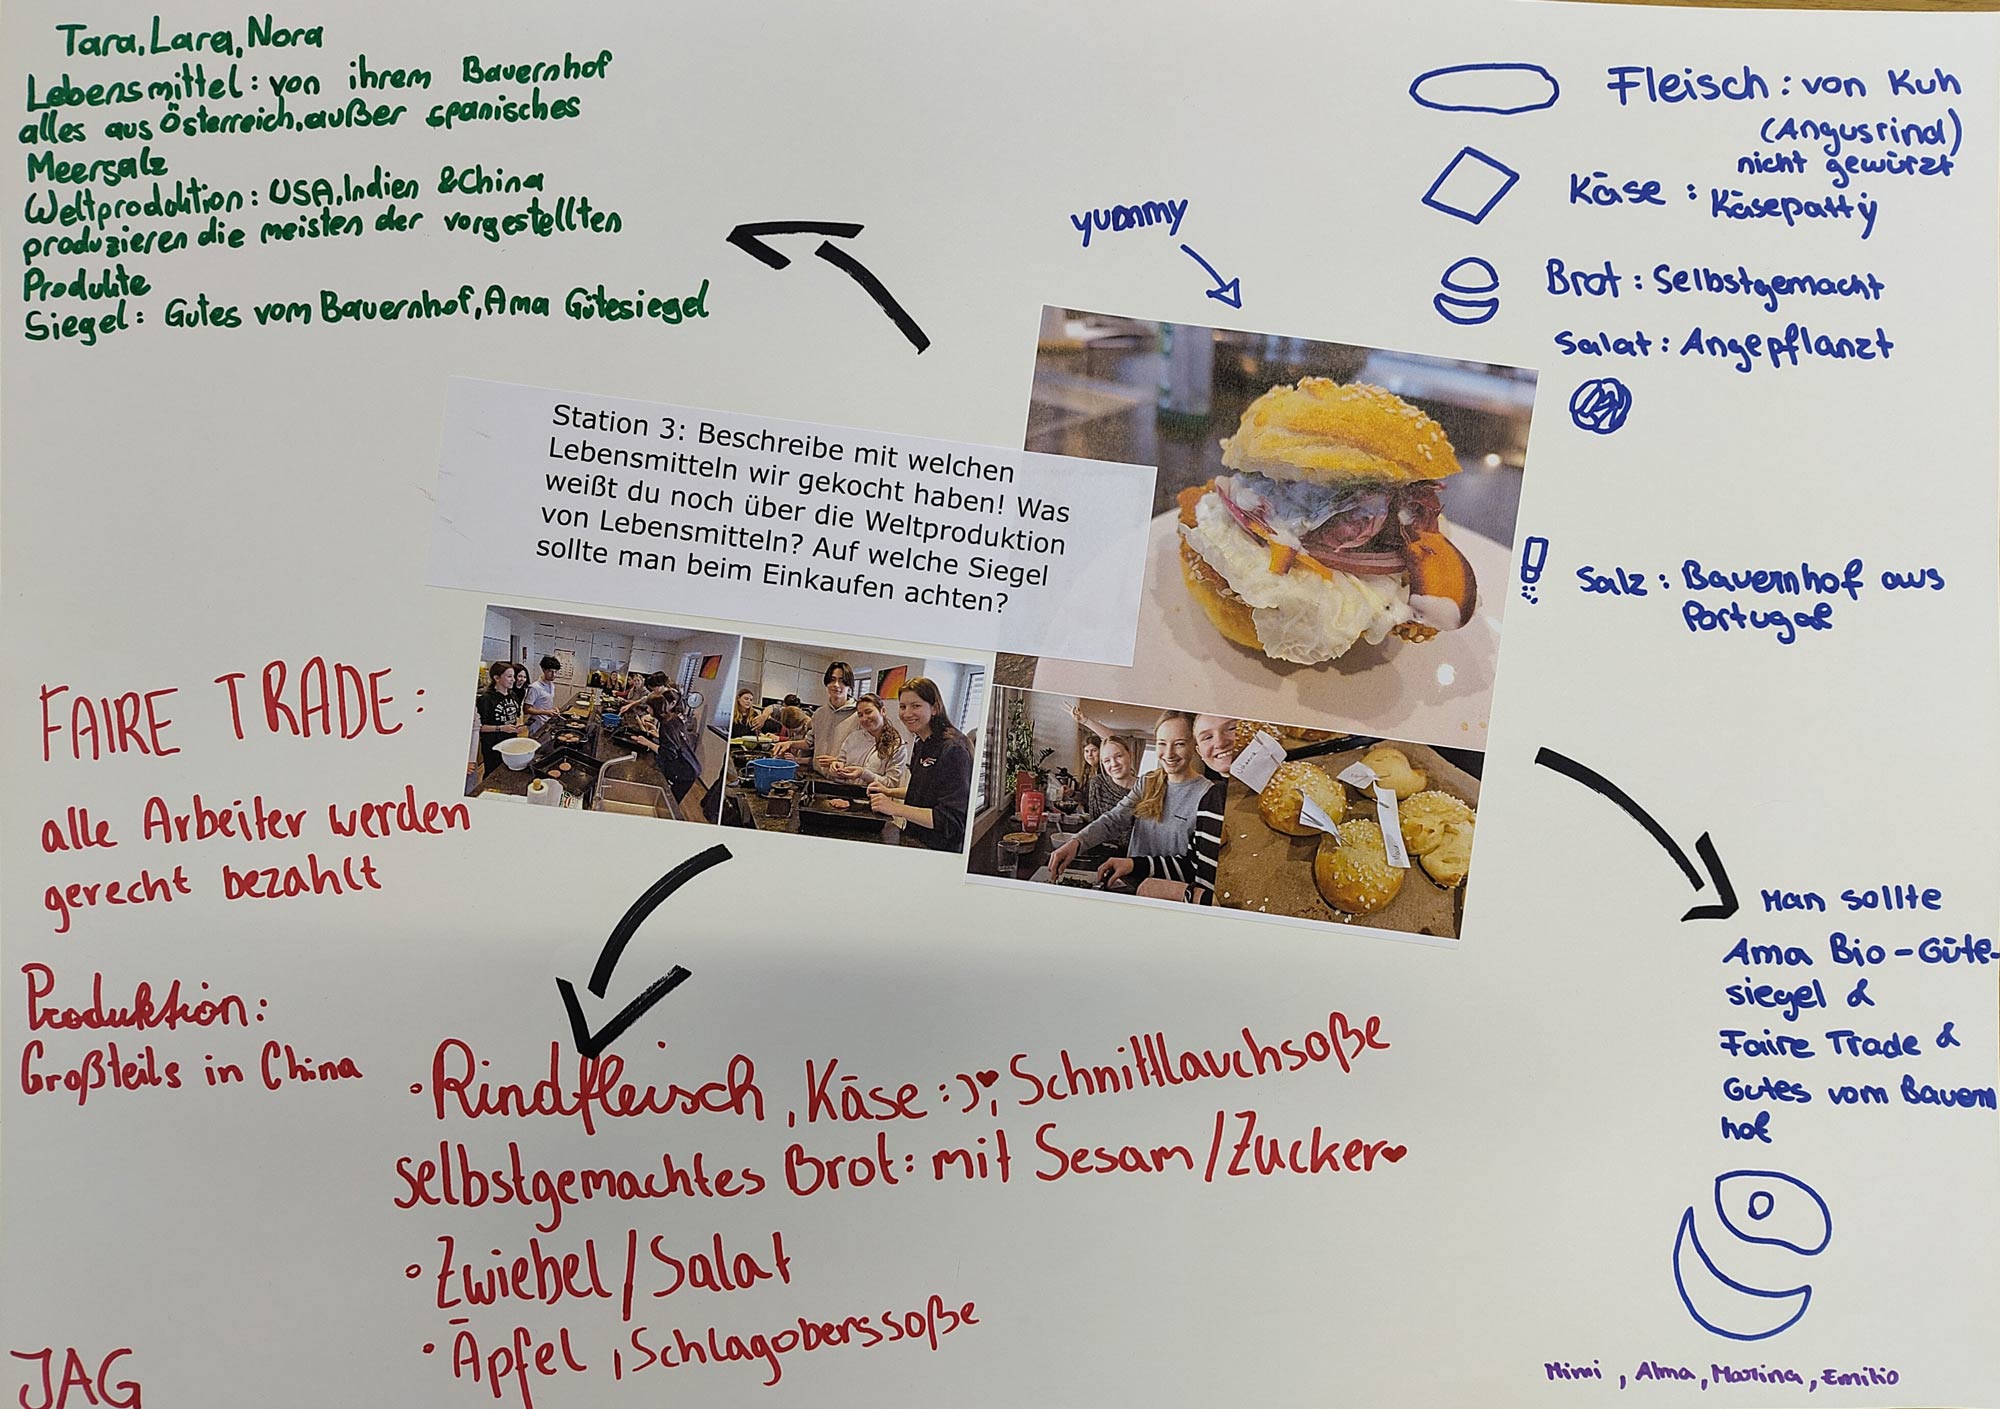 Tara, Lara, Nora
Lebensmittel: von ihrem Bauernhof
alles aus Österreich, außer spanisches
Meersalz
Weltproduktion: USA, Indien & China
produzieren die meisten der vorgestellten
Produkte
Siegel: Gutes vom Bauernhof, Ama Gütesiegel
yummy
Fleisch: von Kuh
(Angusrind)
nicht gewürzt
Käse: Käsepatty
Brot: Selbstgemacht
Salat: Angepflanzt
Salz: Bauernhof aus
Portugal
Station 3: Beschreibe mit welchen
Lebensmitteln wir gekocht haben! Was
weißt du noch über die Weltproduktion
von Lebensmitteln? Auf welche Siegel
sollte man beim Einkaufen achten?
FAIRE TRADE:
alle Arbeiter werden
gerecht bezahlt
Produktion:
Großteils in China
• Rindfleisch, Käse :) ♥, Schnittlauchsoße
selbstgemachtes Brot: mit Sesam/Zucker ♥
• Zwiebel/Salat
• Äpfel, Schlagoberssoße
JAG
Man sollte
Ama Bio-Güte-
siegel &
Faire Trade &
Gutes vom Bauern
hof
Mimi, Alma, Marina, Emilio